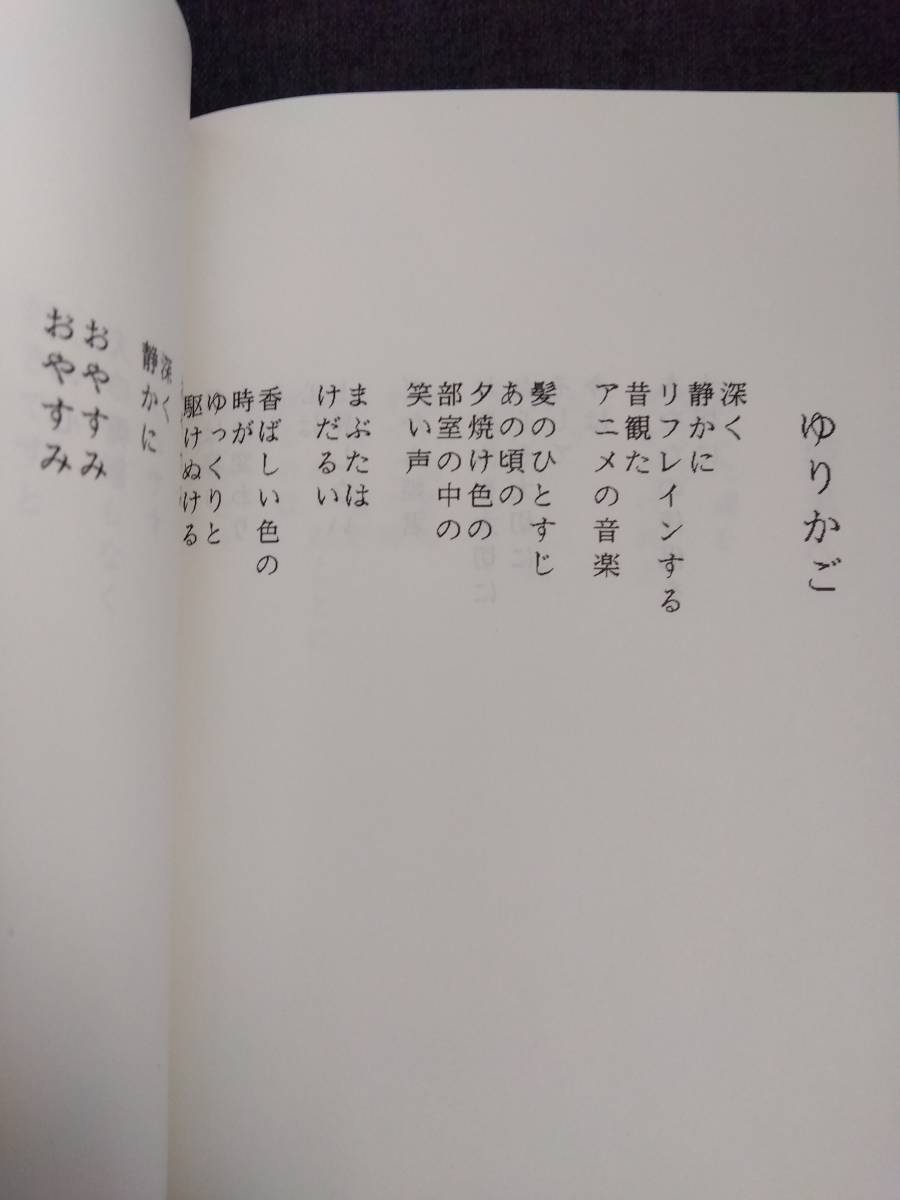 ゆりかご
深く
静かに
リフレインする
昔観た
アニメの音楽
髪のひとすじ
あの頃の
夕焼け色の
部室の中の
笑い声
まぶたは
けだるい
香ばしい色の
時が
ゆっくりと
駆けぬける
深く
静かに
おやすみ
おやすみ